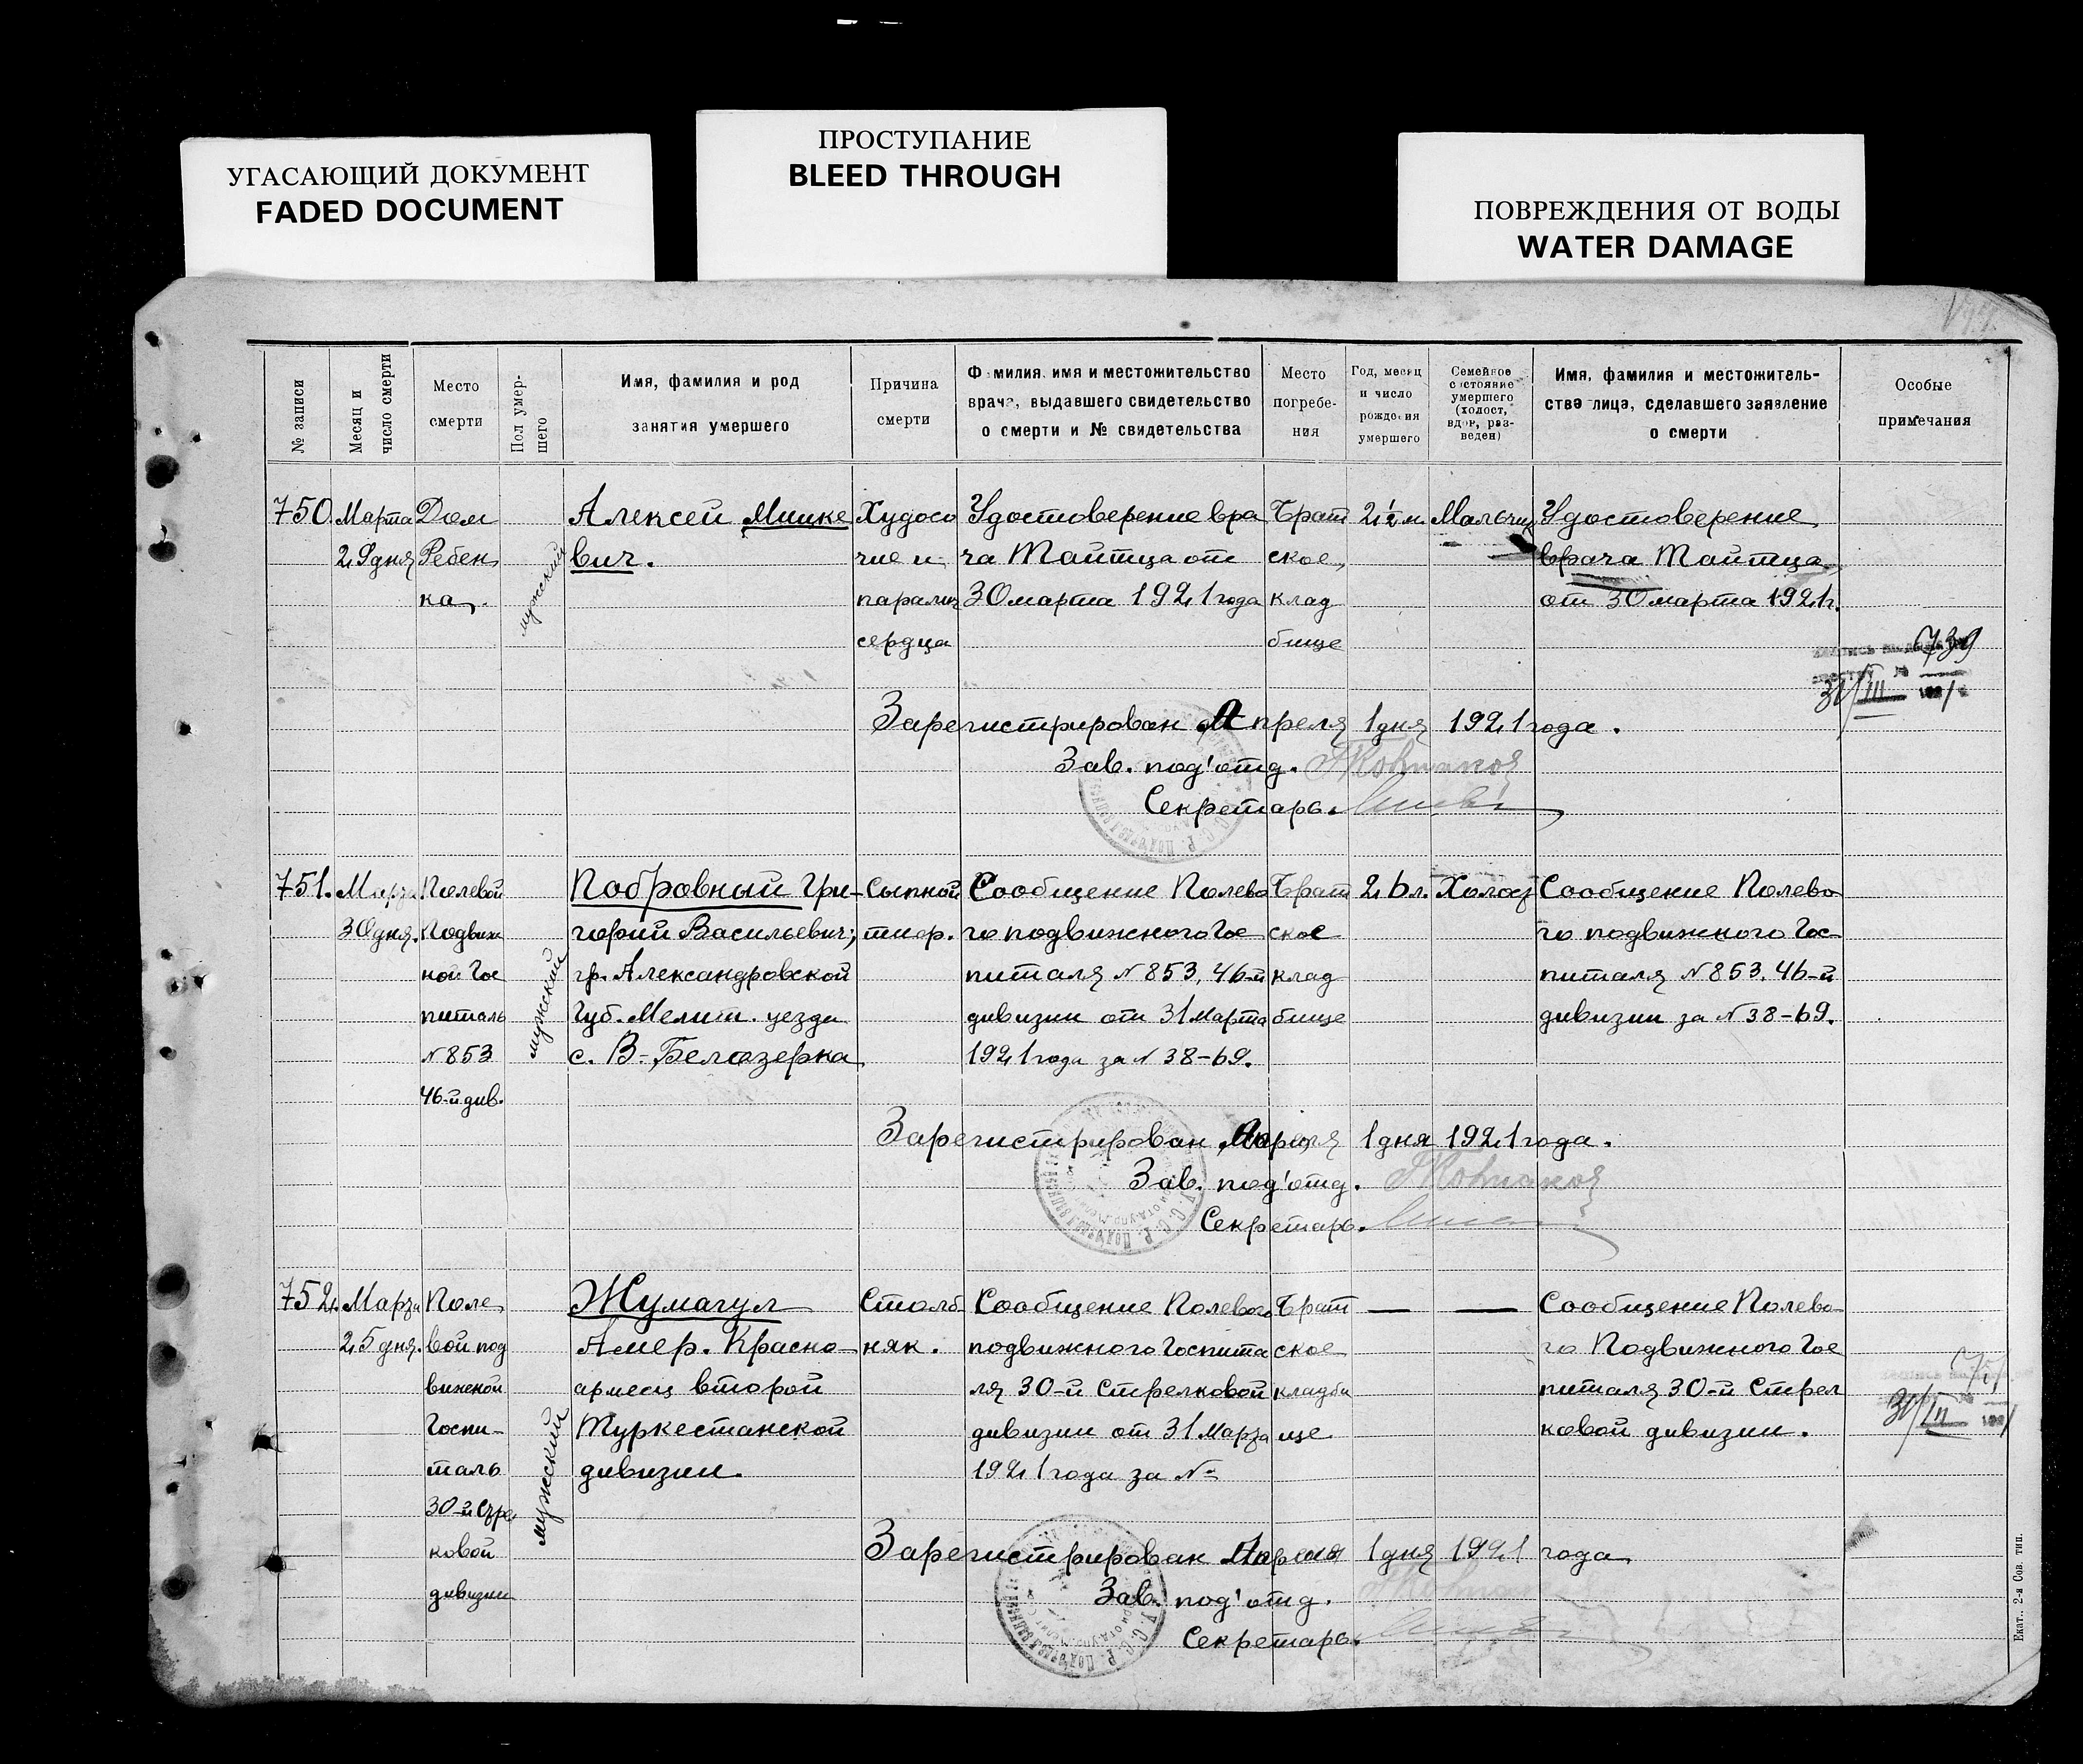 УГАСАЮЩИЙ ДОКУМЕНТ
FADED DOCUMENT
ПРОСТУПАНИЕ
BLEED THROUGH
ПОВРЕЖДЕНИЯ ОТ ВОДЫ
WATER DAMAGE
№ записи
Месяц и
число смерти
Место
смерти
Пол умер-
шего
Имя, фамилия и род
занятия умершего
Причина
смерти
Фамилия, имя и местожительство
врача, выдавшего свидетельство
о смерти и № свидетельства
Место
погребе-
ния
Год, месяц
и число
рождения
умершего
Семейное
состояние
умершего
(холост,
вдов, раз-
веден)
Имя, фамилия и местожитель-
ства лица, сделавшего заявление
о смерти
Особые
примечания
750.
Марта
29 дня
Дом
Ребен
ка.
мужский
Алексей Мицке
вич.
Худосо
чие и
паралич
сердца
Удостоверение вра
ча Тайтца от
30 марта 1921 года
Брат
ское
клад
бище
2½ м.
Мальчик
Удостоверение
врача Тайтца
от 30 марта 1921 г.
739
31/III 1921
Зарегистрирован Апреля 1 дня 1921 года.
Зав. под'отд.
Секретарь.
751.
Марта
30 дня.
Полевой
Подвиж
ной Гос
питаль
№ 853
46-й див.
мужский
Подровный Гри-
горий Васильевич;
гр. Александровской
Губ. Мелит. уезда
с. В-Белозерка
Сыпной
тиф.
Сообщение Полево
го подвижного Гос
питаля № 853, 46-й
дивизии от 31 Марта
1921 года за № 38-69.
Брат
ское
клад
бище
26 л.
Холост
Сообщение Полево
го подвижного Гос
питаля № 853, 46-й
дивизии за № 38-69.
Зарегистрирован Апреля 1 дня 1921 года.
Зав. под'отд.
Секретарь.
752.
Марта
25 дня.
Поле
вой под
вижной
Госпи-
таль
30-й Стре
ковой
дивизии
мужеский
Жумагул
Амер. Красно
армеец второй
Туркестанской
дивизии.
Столб
няк.
Сообщение Полевого
подвижного Госпита
ля 30-й Стрелковой
дивизии от 31 Марта
1921 года за №
Брат
ское
кладби
ще
—
—
Сообщение Полево
го Подвижного Гос
питаля 30-й Стрел
ковой дивизии.
31/III 1921
Зарегистрирован Апреля 1 дня 1921 года
Зав. под'отд.
Секретарь.
Екат., 2-я Сов. тип.